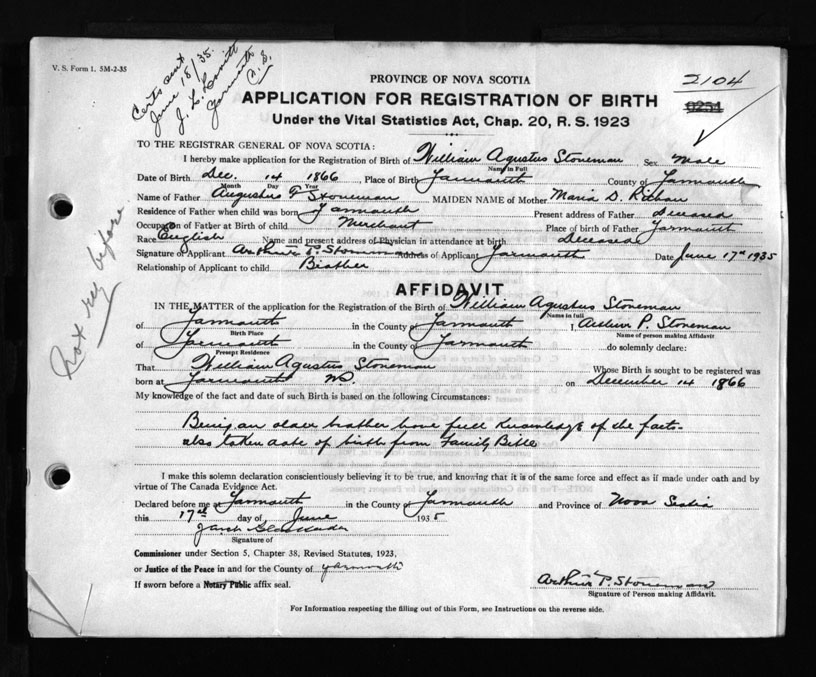 V. S. Form 1. 5M-2-35
Certs sent
June 18/35.
J. L. Lovitt
Yarmouth
2104
0254
PROVINCE OF NOVA SCOTIA
APPLICATION FOR REGISTRATION OF BIRTH
Under the Vital Statistics Act, Chap. 20, R. S. 1923
TO THE REGISTRAR GENERAL OF NOVA SCOTIA:
I hereby make application for the Registration of Birth of William Agustus Stoneman Sex Male
Name in Full
Date of Birth Dec. 14 1866 Place of Birth Yarmouth County of Yarmouth
Month Day Year
Name of Father Augustus F Stoneman MAIDEN NAME of Mother Maria D.
Residence of Father when child was born Yarmouth Present address of Father Deceased
Occupation of Father at Birth of child Merchant Place of birth of Father Yarmouth
Race English Name and present address of Physician in attendance at birth Deceased
Signature of Applicant Arthur P. Stoneman Address of Applicant Yarmouth Date June 17th 1935
Relationship of Applicant to child Brother
Not reg before
AFFIDAVIT
IN THE MATTER of the application for the Registration of the Birth of William Agustus Stoneman
Name in full
of Yarmouth in the County of Yarmouth I Arthur P. Stoneman
Birth Place Name of person making Affidavit
of Yarmouth in the County of Yarmouth do solemnly declare:
Present Residence
That William Agustus Stoneman Whose Birth is sought to be registered was
born at Yarmouth NS. on December 14 1866
My knowledge of the fact and date of such Birth is based on the following Circumstances:
Being an older brother have full knowledge of the facts.
also taken date of birth from Family Bible
I make this solemn declaration conscientiously believing it to be true, and knowing that it is of the same force and effect as if made under oath and by
virtue of The Canada Evidence Act.
Declared before me at Yarmouth in the County of Yarmouth and Province of Nova Scotia
this 17th day of June 1935
Signature of
Commissioner under Section 5, Chapter 38, Revised Statutes, 1923,
or Justice of the Peace in and for the County of Yarmouth
If sworn before a Notary Public affix seal.
Arthur P. Stoneman
Signature of Person making Affidavit.
For Information respecting the filling out of this Form, see Instructions on the reverse side.